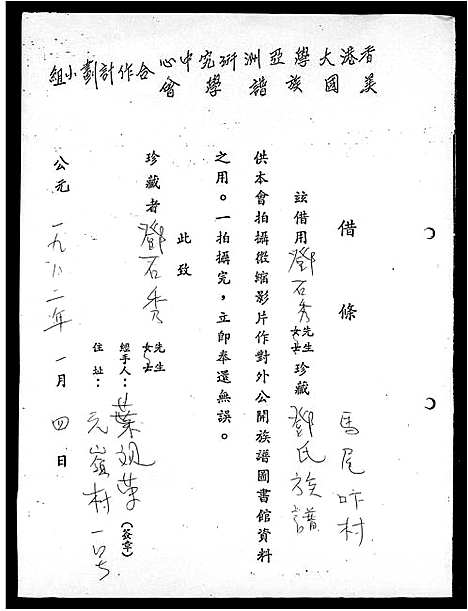 香港大學亞洲研究中心
美國族譜學會
合作計劃小組
借條
馬尾吓村
茲借用鄧石秀先生女士珍藏鄧氏族譜
供本會拍攝微縮影片作對外公開族譜圖書館資料
之用。一拍攝完,立即奉還無誤。
此致
珍藏者鄧石秀先生女士
經手人:葉
(簽章)
住址:元嶺村一号
公元一九八二年一月四日